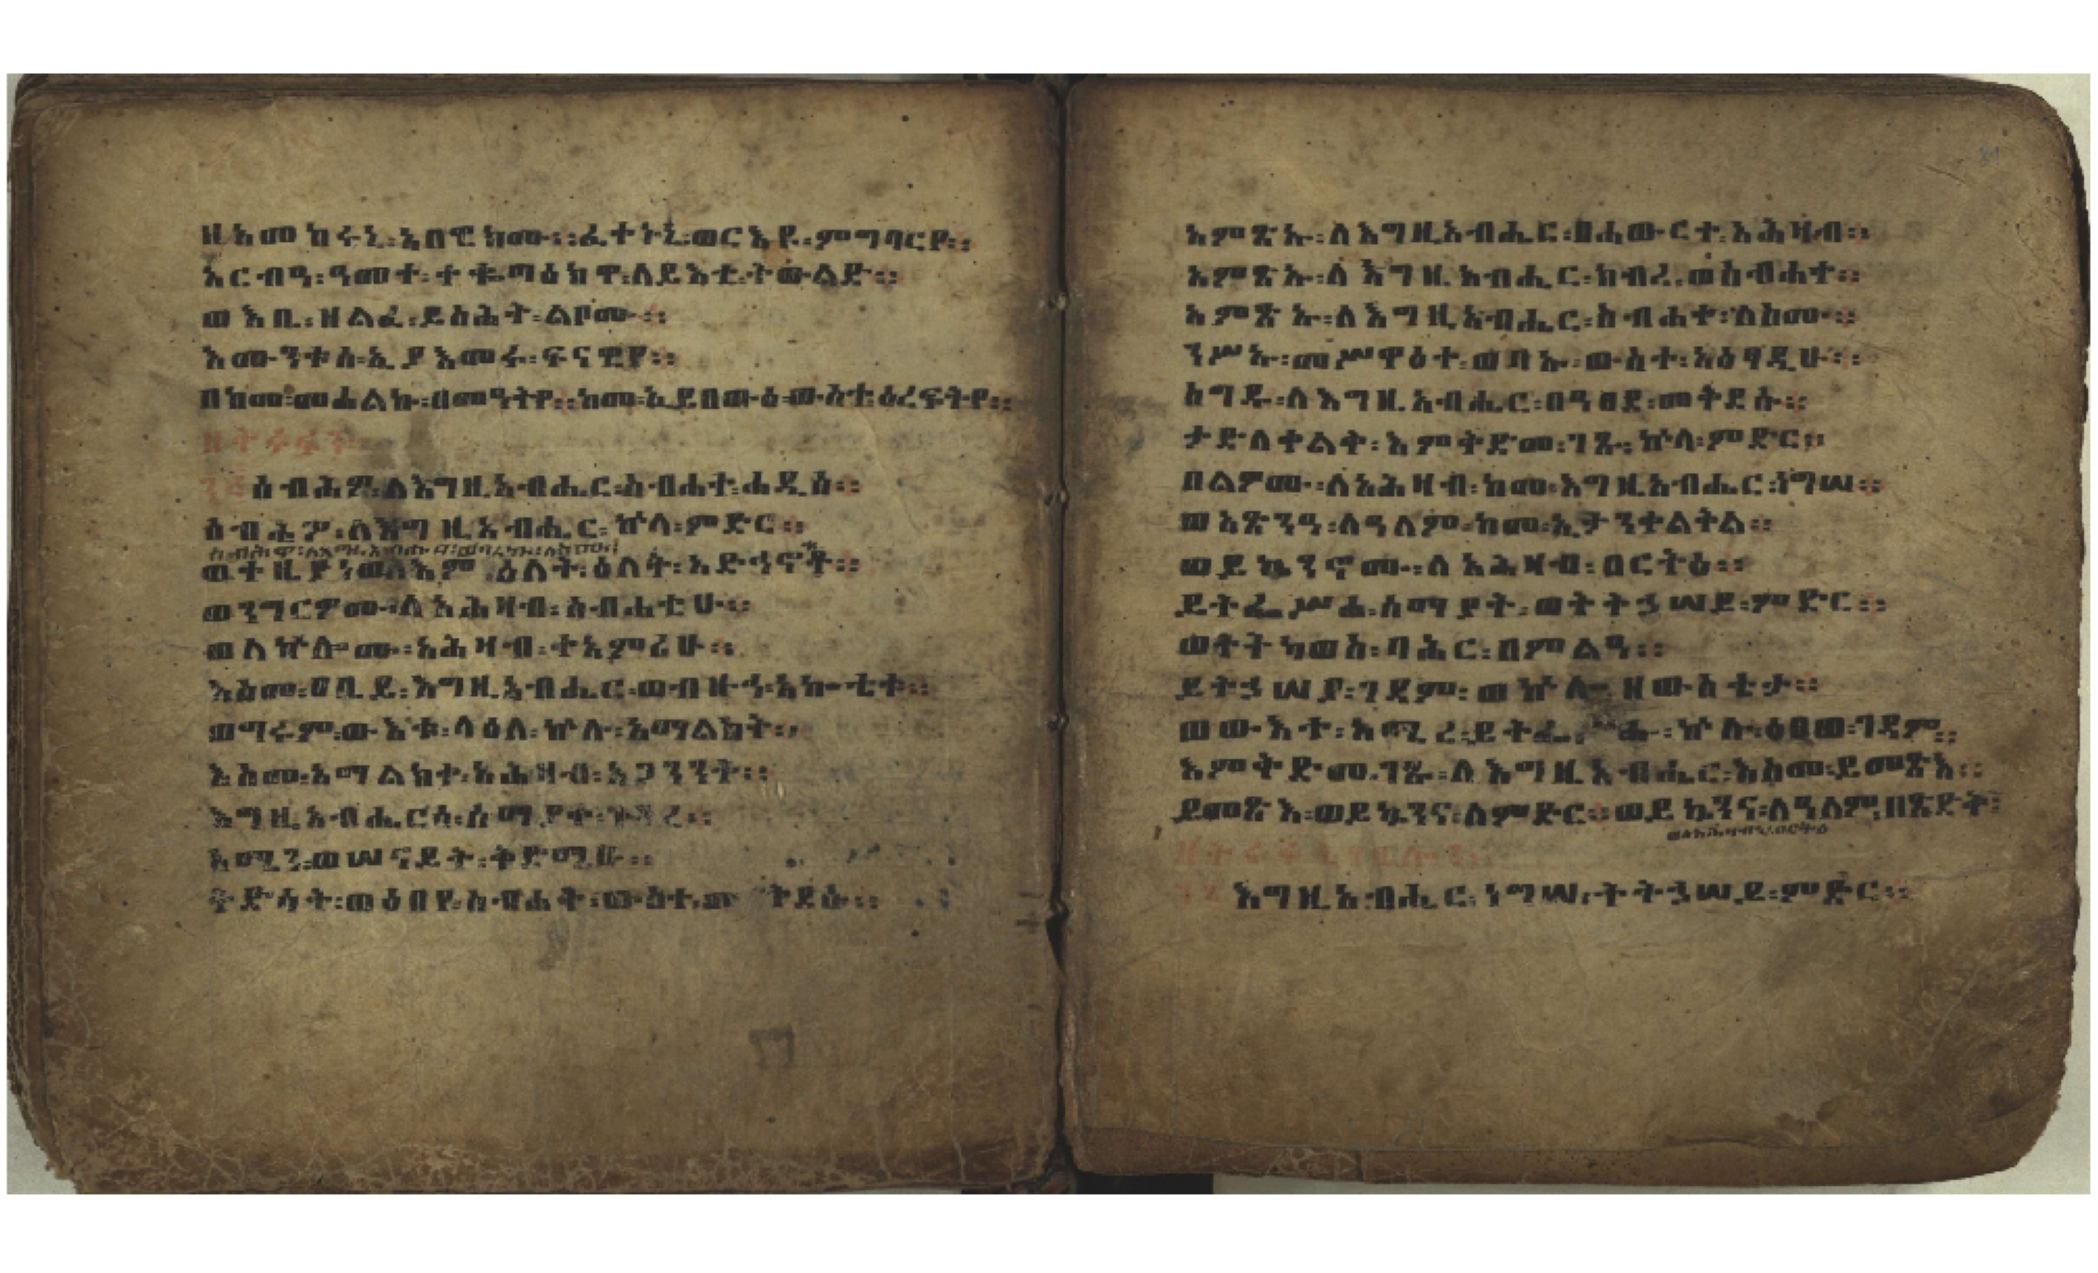 ዘአመከሩኒ፡አበዊክሙ፡፡ፈተኑኒ፡ወርእዩ፡ምግባርየ፡፡
አርብዓ፡ዓመተ፡ተቈጣዕክዋ፡ለይእቲ፡ትውልድ፡፡
ወእቤ፡ዘልፈ፡ይስሕት፡ልቦሙ፡፡
እሙንቱሰ፡ኢያእመሩ፡ፍናዊየ፡፡
በከመ፡መሐልኩ፡በመዓትየ፡፡ከመ፡ኢይበውዕ፡ውስተ፡ዕረፍትየ፡፡
ሰብሕዎ፡ለእግዚአብሔር፡ስብሐተ፡ሐዲሰ፡፡
ሰብሕዎ፡ለእግዚአብሔር፡ኵላ፡ምድር፡፡
ሰብሕዎ፡ለእግዚአብሔር፡ወባረኩ፡ለስሙ፡
ወተዚያነወ፡እም፡ዕለት፡ዕለት፡አድኅኖቶ፡፡
ወንግርዎሙ፡ለአሕዛብ፡ስብሐቲሁ፡፡
ወለኵሎሙ፡አሕዛብ፡ተአምረሁ፡፡
እስመ፡ዐቢይ፡እግዚአብሔር፡ወብዙኅ፡አኰቴቱ፡፡
ወግሩም፡ውእቱ፡ላዕለ፡ኵሉ፡አማልክት፡፡
እስመ፡አማልክተ፡አሕዛብ፡አጋንንት፡፡
እግዚአብሔርሰ፡ሰማያተ፡ገብረ፡፡
አሚን፡ወሠናይት፡ቅድሜሁ፡፡
ቅድሳት፡ወዕበየ፡ስብሐት፡ውስተ፡መቅደሱ፡፡
አምጽኡ፡ለእግዚአብሔር፡በሐውርተ፡አሕዛብ፡፡
አምጽኡ፡ለእግዚአብሔር፡ክብረ፡ወስብሐተ፡፡
አምጽኡ፡ለእግዚአብሔር፡ስብሐተ፡ለስሙ፡፡
ንሥኡ፡መሥዋዕተ፡ወባኡ፡ውስተ፡አዕፃዲሁ፡፡
ስግዱ፡ለእግዚአብሔር፡በዓፀደ፡መቅደሱ፡፡
ታድለቀልቅ፡እምቅድመ፡ገጹ፡ኵላ፡ምድር፡፡
በልዎሙ፡ለአሕዛብ፡ከመ፡እግዚአብሔር፡ነግሠ፡፡
ወአጽንዓ፡ለዓለም፡ከመ፡ኢታንቀልቅል፡፡
ወይኴንኖሙ፡ለአሕዛብ፡በርትዕ፡፡
ይትፌሥሓ፡ሰማያት፡ወትትኃሠይ፡ምድር፡፡
ወትትከወስ፡ባሕር፡በምልዓ፡፡
ይትኃሠያ፡ገዳም፡ወኵሉ፡ዘውስቴታ፡፡
ወውእተ፡አሚረ፡ይትፌሥሑ፡ኵሉ፡ዕፀወ፡ገዳም፡፡
እምቅድመ፡ገጹ፡ለእግዚአብሔር፡እስመ፡ይመጽእ፡፡
ይመጽእ፡ወይኴንና፡ለምድር፡፡ወይኴንና፡ለዓለም፡በጽድቅ፡
እግዚአብሔር፡ነግሠ፡ትትኃሠይ፡ምድር፡፡